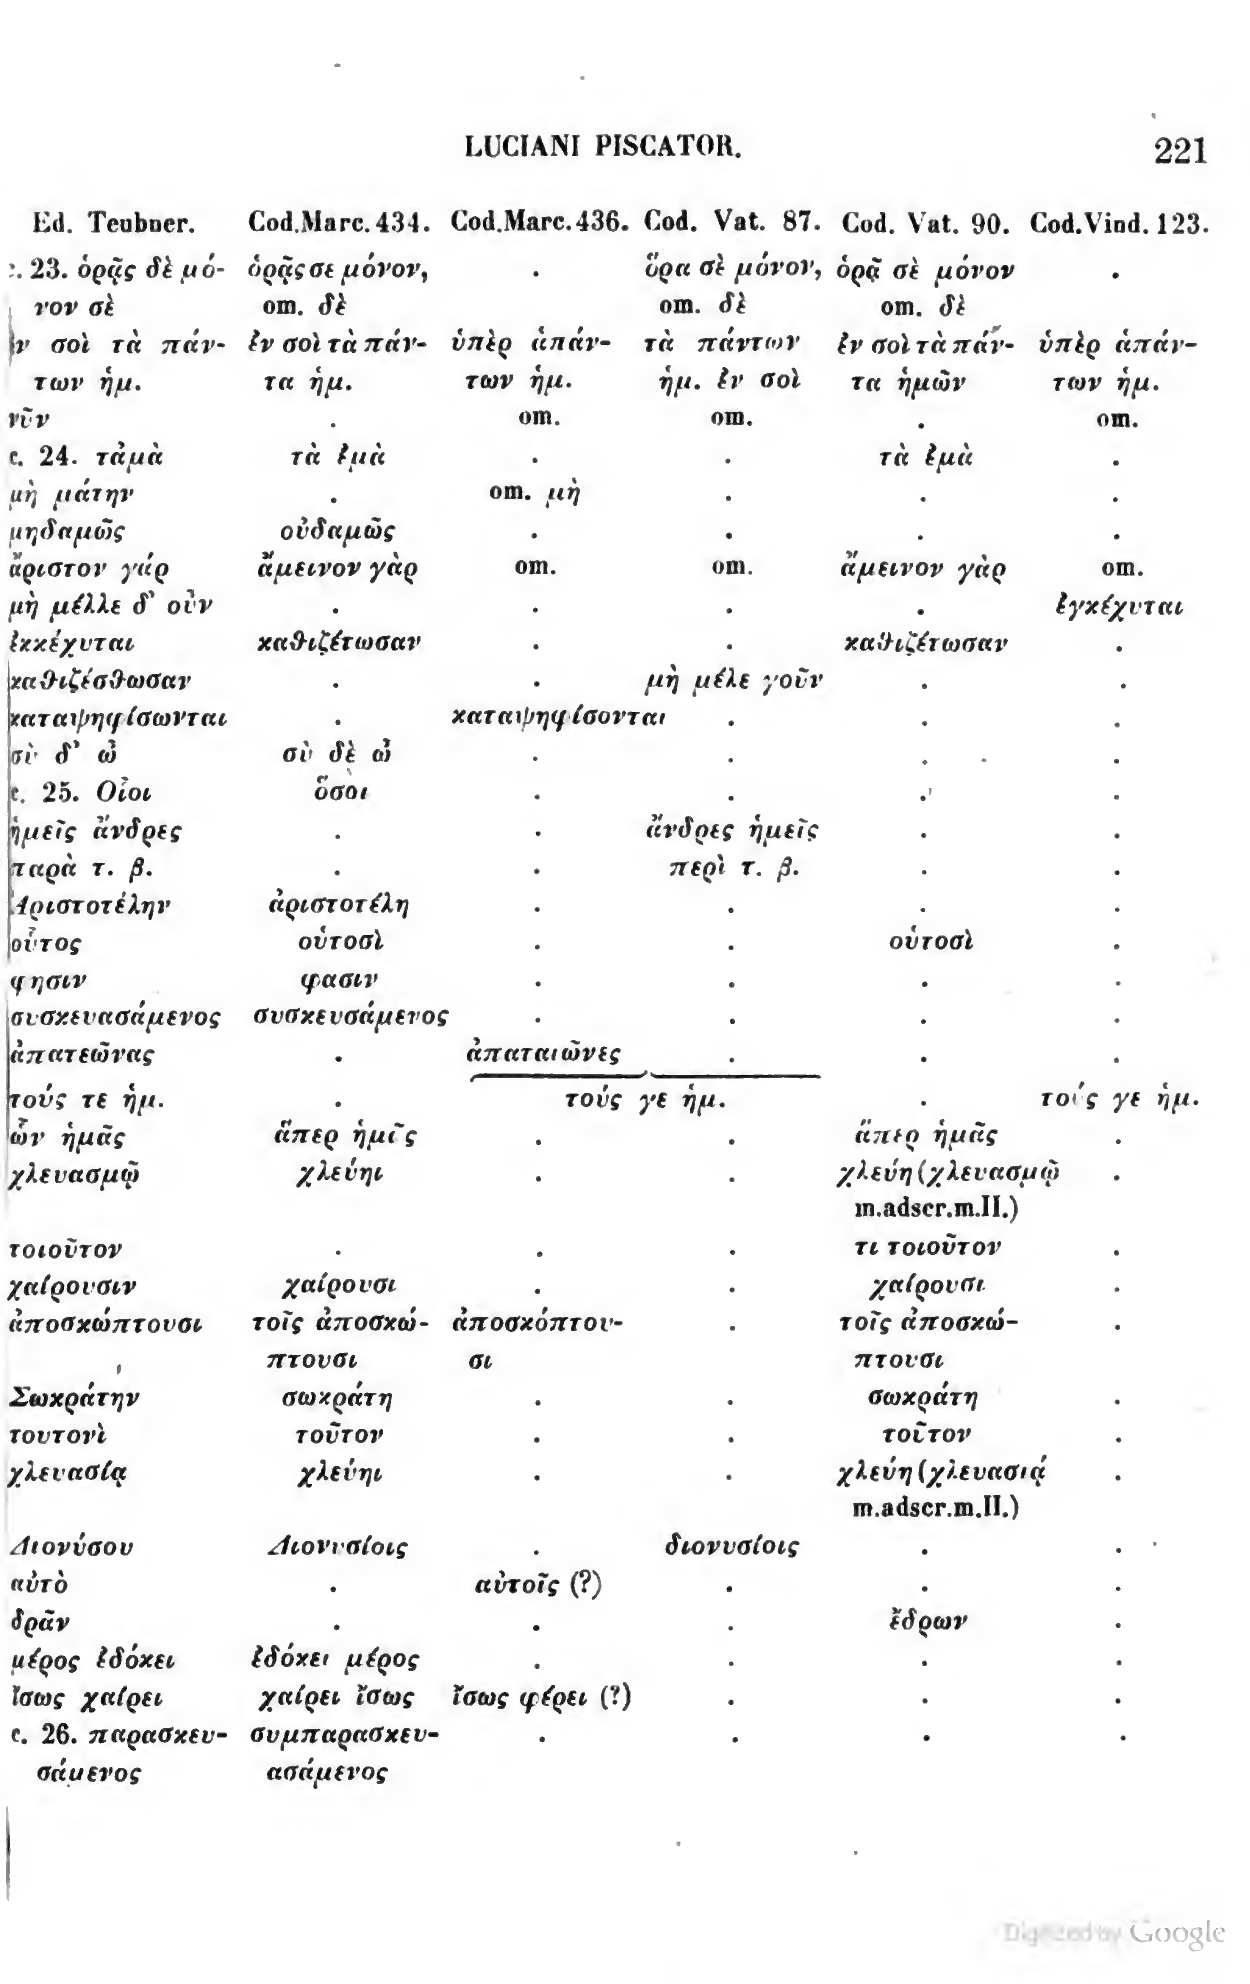 LUCIANI PISCATOR. 221
Ed. Teubner. Cod.Marc.434. Cod.Marc.436. Cod. Vat. 87. Cod. Vat. 90. Cod.Vind.123.
c. 23. ὁρᾷς δὲ μό- ὁρᾷς σε μόνον, . ὅρα σὲ μόνον, ὁρᾷ σὲ μόνον .
νον σὲ om. δὲ om. δὲ om. δὲ
ἐν σοὶ τὰ πάν- ἐν σοὶ τὰ πάν- ὑπὲρ ἁπάν- τὰ πάντων ἐν σοὶ τὰ πάν- ὑπὲρ ἁπάν-
των ἡμ. τα ἡμ. των ἡμ. ἡμ. ἐν σοὶ τα ἡμῶν των ἡμ.
νῦν . om. om. . om.
c. 24. τἀμὰ τὰ ἐμὰ . . τὰ ἐμὰ .
μὴ μάτην . om. μὴ . . .
μηδαμῶς οὐδαμῶς . . . .
ἄριστον γάρ ἄμεινον γὰρ om. om. ἄμεινον γὰρ om.
μὴ μέλλε δ' οὖν . . . . ἐγκέχυται
ἐκκέχυται καθιζέτωσαν . . καθιζέτωσαν .
καθιζέσθωσαν . . μὴ μέλε γοῦν . .
καταψηφίσωνται . καταψηφίσονται . . .
σὺ δ' ὦ σὺ δὲ ὦ . . . .
c. 25. Οἷοι ὅσοι . . . .
ἡμεῖς ἄνδρες . . ἄνδρες ἡμεῖς . .
παρὰ τ. β. . . περὶ τ. β. . .
Ἀριστοτέλην ἀριστοτέλη . . . .
οὗτος οὑτοσὶ . . οὑτοσὶ .
φησιν φασιν . . . .
συσκευασάμενος συσκευσάμενος . . . .
ἀπατεῶνας . ἀπαταιῶνες . . .
τούς τε ἡμ. . τούς γε ἡμ. . τούς γε ἡμ.
ὧν ἡμᾶς ἅπερ ἡμῖς . . ἅπερ ἡμᾶς .
χλευασμῷ χλεύηι . . χλεύη (χλευασμῷ .
m.adscr.m.II.)
τοιοῦτον . . . τι τοιοῦτον .
χαίρουσιν χαίρουσι . . χαίρουσι .
ἀποσκώπτουσι τοῖς ἀποσκώ- ἀποσκόπτου- . τοῖς ἀποσκώ- .
πτουσι σι πτουσι
Σωκράτην σωκράτη . . σωκράτη .
τουτονὶ τοῦτον . . τοῦτον .
χλευασίᾳ χλεύηι . . χλεύη (χλευασιᾴ .
m.adscr.m.II.)
Διονύσου Διονυσίοις . διονυσίοις . .
αὐτὸ . αὐτοῖς (?) . . .
δρᾶν . . . ἔδρων .
μέρος ἐδόκει ἐδόκει μέρος . . . .
ἴσως χαίρει χαίρει ἴσως ἴσως φέρει (?) . . .
c. 26. παρασκευ- συμπαρασκευ- . . . .
σάμενος ασάμενος
Digitized by Google